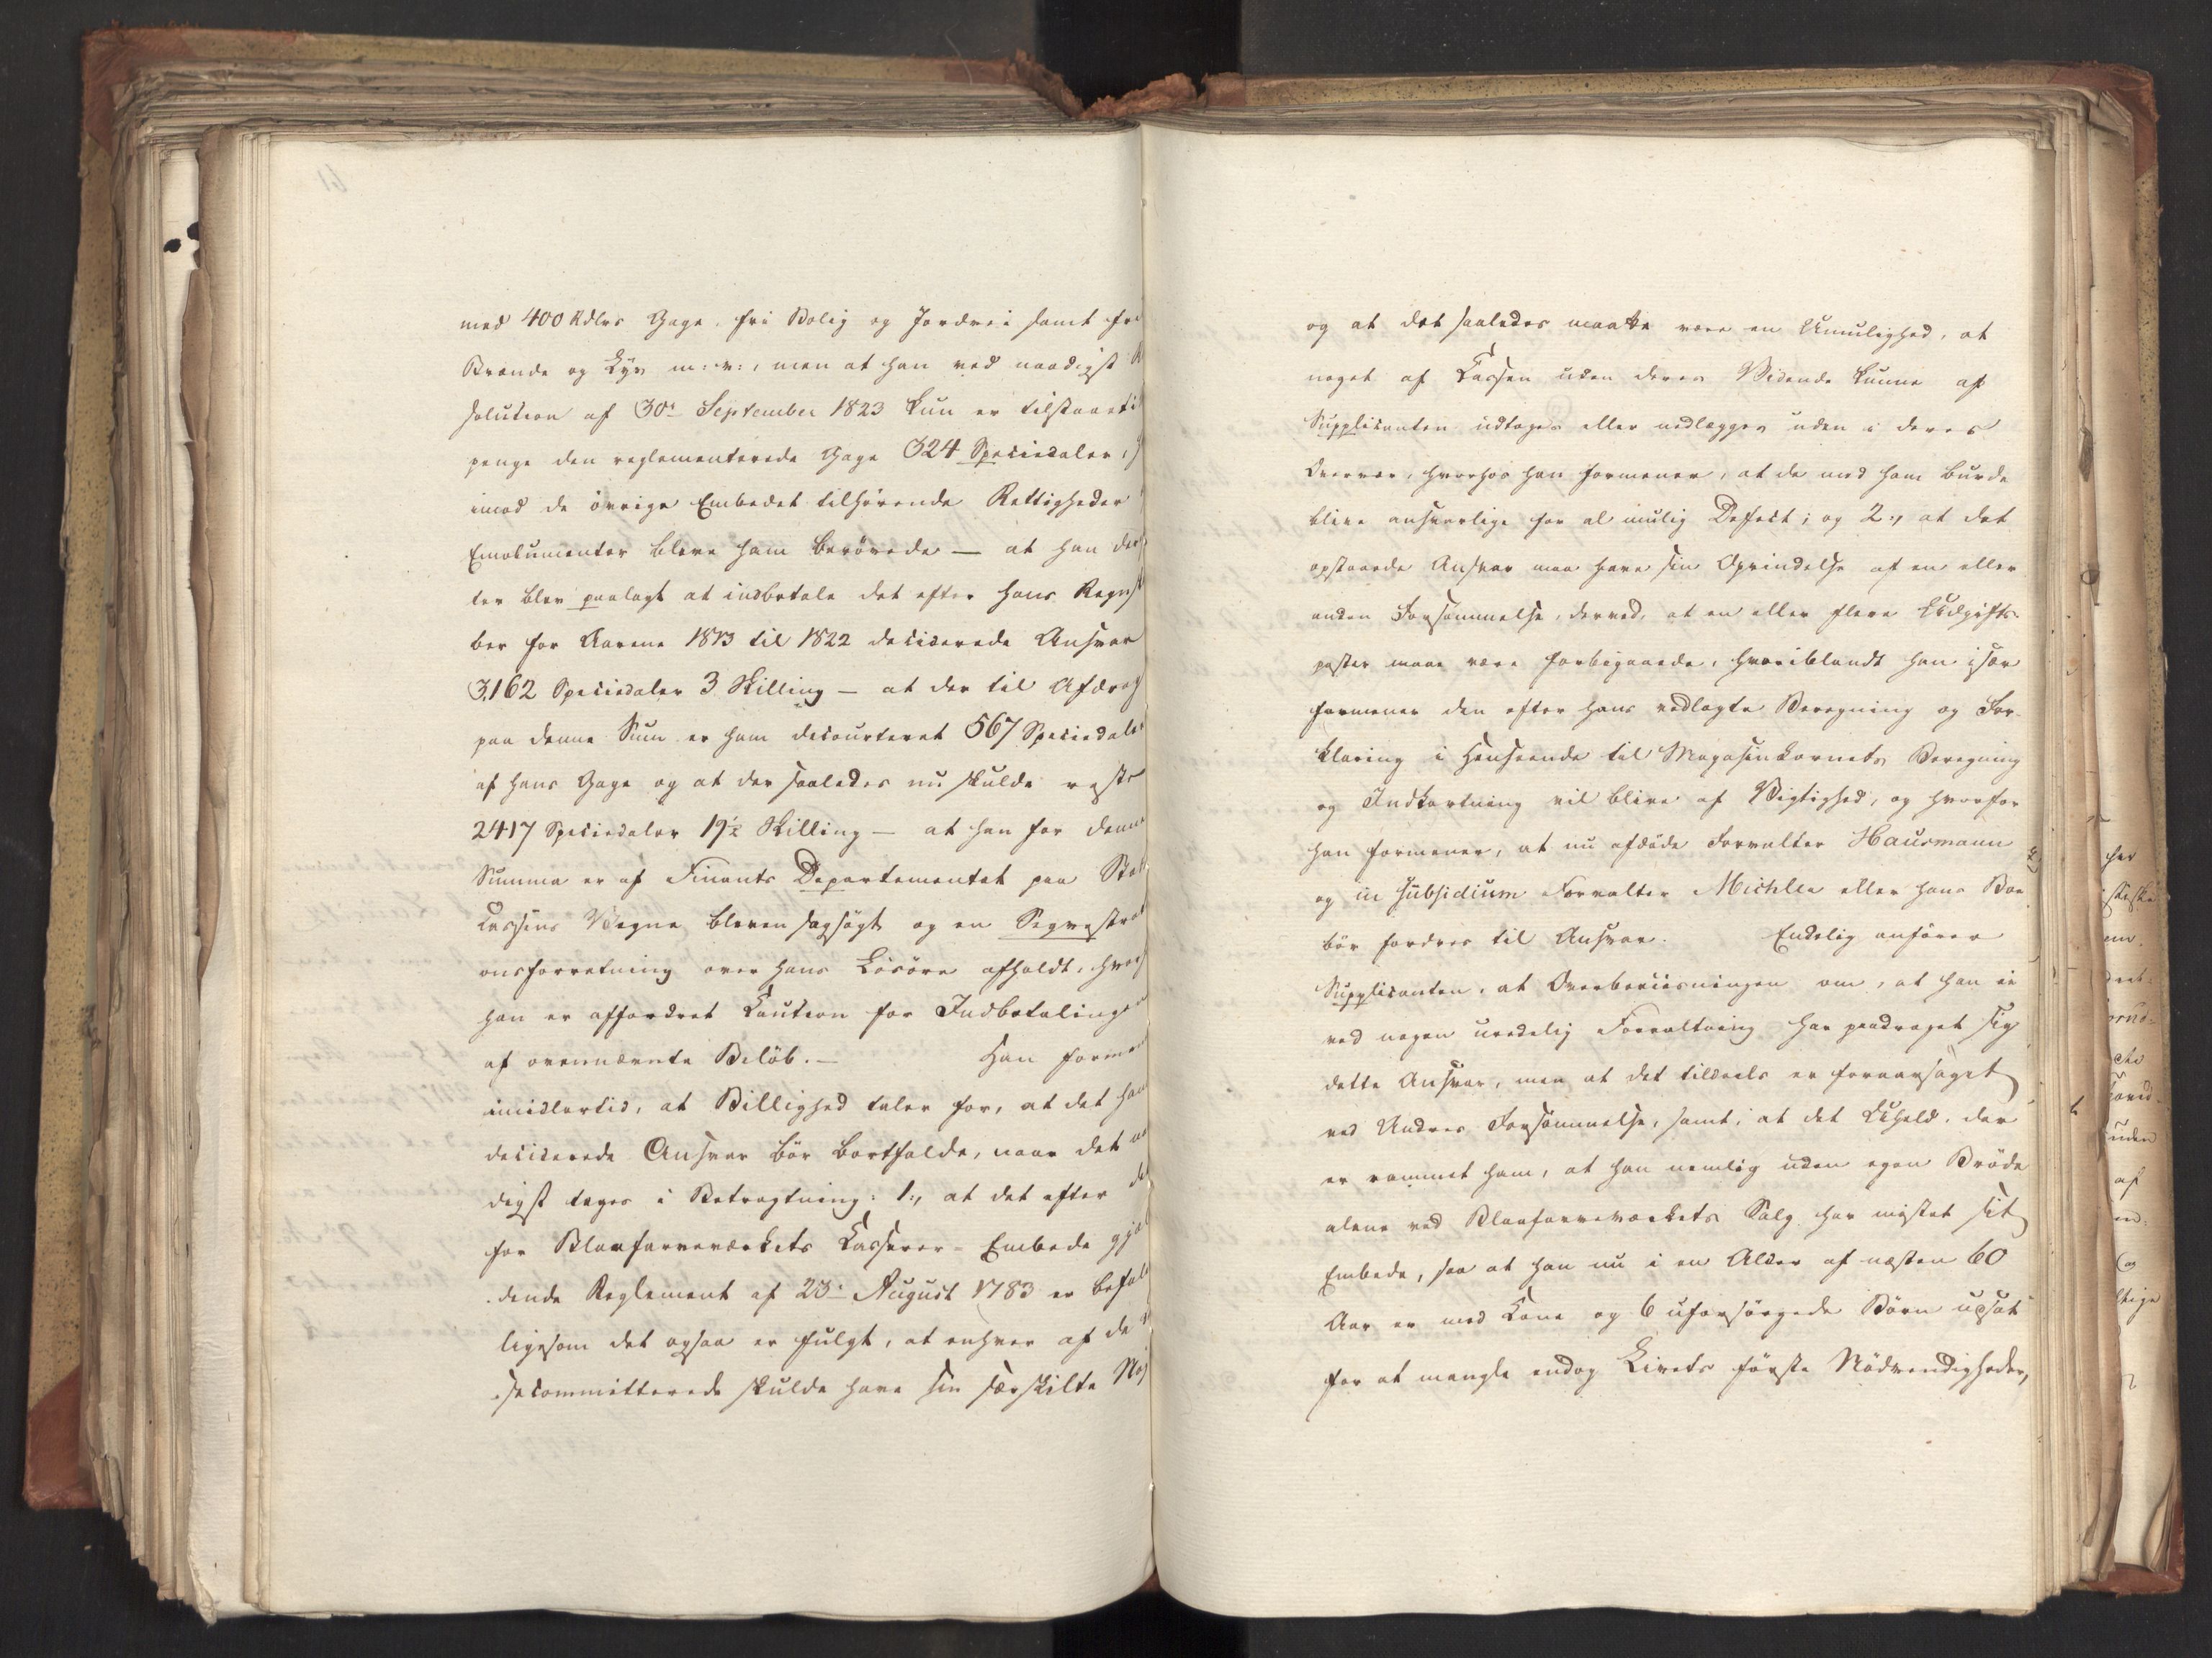 med 400 Rdlrs Gage, fri Bolig og Jordvei samt fri
Brænde og Lys m: v:, men at han ved naadigst
solution af 30te September 1823 kun er tilstaaet i
penge den reglementerede Gage 324 Speciedaler,
imod de øvrige Embedet tilhørende Rettigheder
Emolumenter bleve ham berøvede — at han
ter blev paalagt at indbetale det efter hans Regnska
ber for Aarene 1813 til 1822 deciderede Ansvar
3,162 Speciedaler 3 Skilling — at der til Afdrag
paa denne Sum er ham decourteret 567 Speciedaler
af hans Gage og at der saaledes nu skulde reste
2417 Speciedaler 19½ Skilling — at han for denne
Summa er af Finants Departementet paa Stats
Cassens Vegne bleven sagsøgt og en Seqvestrati
onsforretning over hans Løsøre afholdt, hvorhos
han er affordret Caution for Indbetalingen
af ovennævnte Beløb. — Han formener
imidlertid, at Billighed taler for, at det ham
deciderede Ansvar bør bortfalde, naar det
digst tages i Betragtning: 1:, at det efter det
for Blaafarveværkets Casserer-Embede gjæl
dende Reglement af 23de August 1783 er befalet
ligesom det ogsaa er fulgt, at enhver af de
decommitterede skulde have sin særskilte Nøg
og at det saaledes maatte være en Umulighed, at
noget af Cassen uden deres Vidende kunne af
Supplicanten udtages eller nedlægges uden i deres
Overvær, hvorhos han formener, at de med ham burde
blive ansvarlige for al mulig Defect; og 2:, at det
opstaaede Ansvar maa have sin Oprindelse af en eller
anden Forsømmelse, derved, at en eller flere Udgifts-
poster maae være forbigaaede, hvoriblandt han især
formener den efter hans vedlagte Beregning og For-
klaring i Henseende til Magasinkornets Beregning
og Indkortning vil blive af Vigtighed, og hvorfor
han formener, at nu afdøde Forvalter Hausmann
og in subsidium Forvalter Michlet eller hans Boe
bør fordres til Ansvar. Endelig anfører
Supplicanten, at Overbeviisningen om, at han ei
ved nogen uredelig Forvaltning har paadraget sig
dette Ansvar, men at det tildeels er foraarsaget
ved Andres Forsømmelse, samt, at det Uheld, der
er rammet ham, at han nemlig uden egen Brøde
alene ved Blaafarveværkets Salg har mistet sit
Embede, saa at han nu i en Alder af næsten 60
Aar er med Kone og 6 uforsørgede Børn udsat
for at mangle endog Livets første Nødvendigheder,